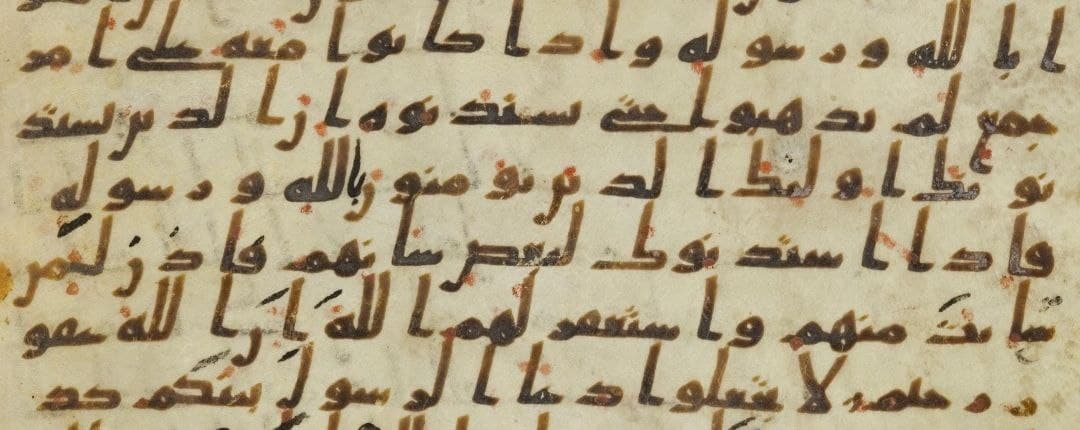 ا بالله ورسوله واذا كانوا معه على امر
جمع لم يذهبوا حتى يستذنوه ان الذين يستذ
نونك اولئك الذين يومنون بالله ورسوله
فاذا استذنوك لبعض شانهم فاذن لمن
شئت منهم واستغفر لهم الله ان الله غفو
ر رحيم لا تجعلوا دعا الرسول بينكم كد